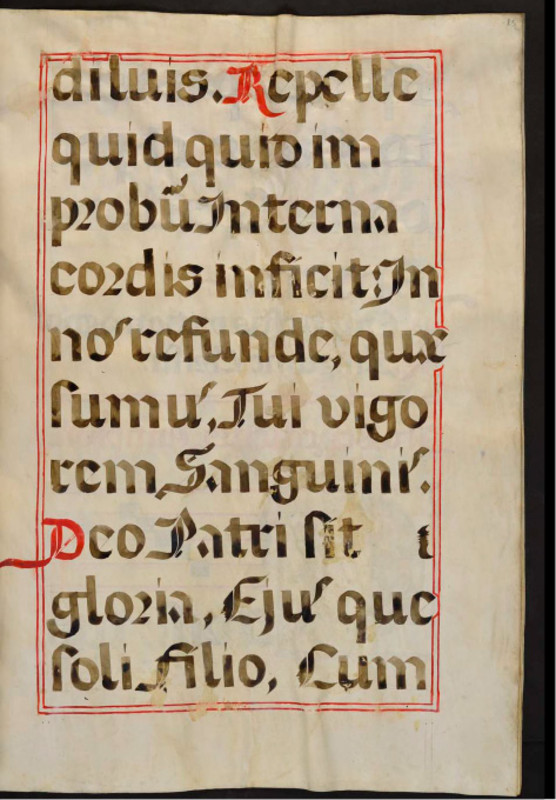 diluis. Repelle
quid quid im
probū Interna
cordis inficit: In
nos refunde, quæ
sumus, Tui vigo
rem Sanguinis.
Deo Patri sit t
gloria, Ejus que
soli Filio, Cum